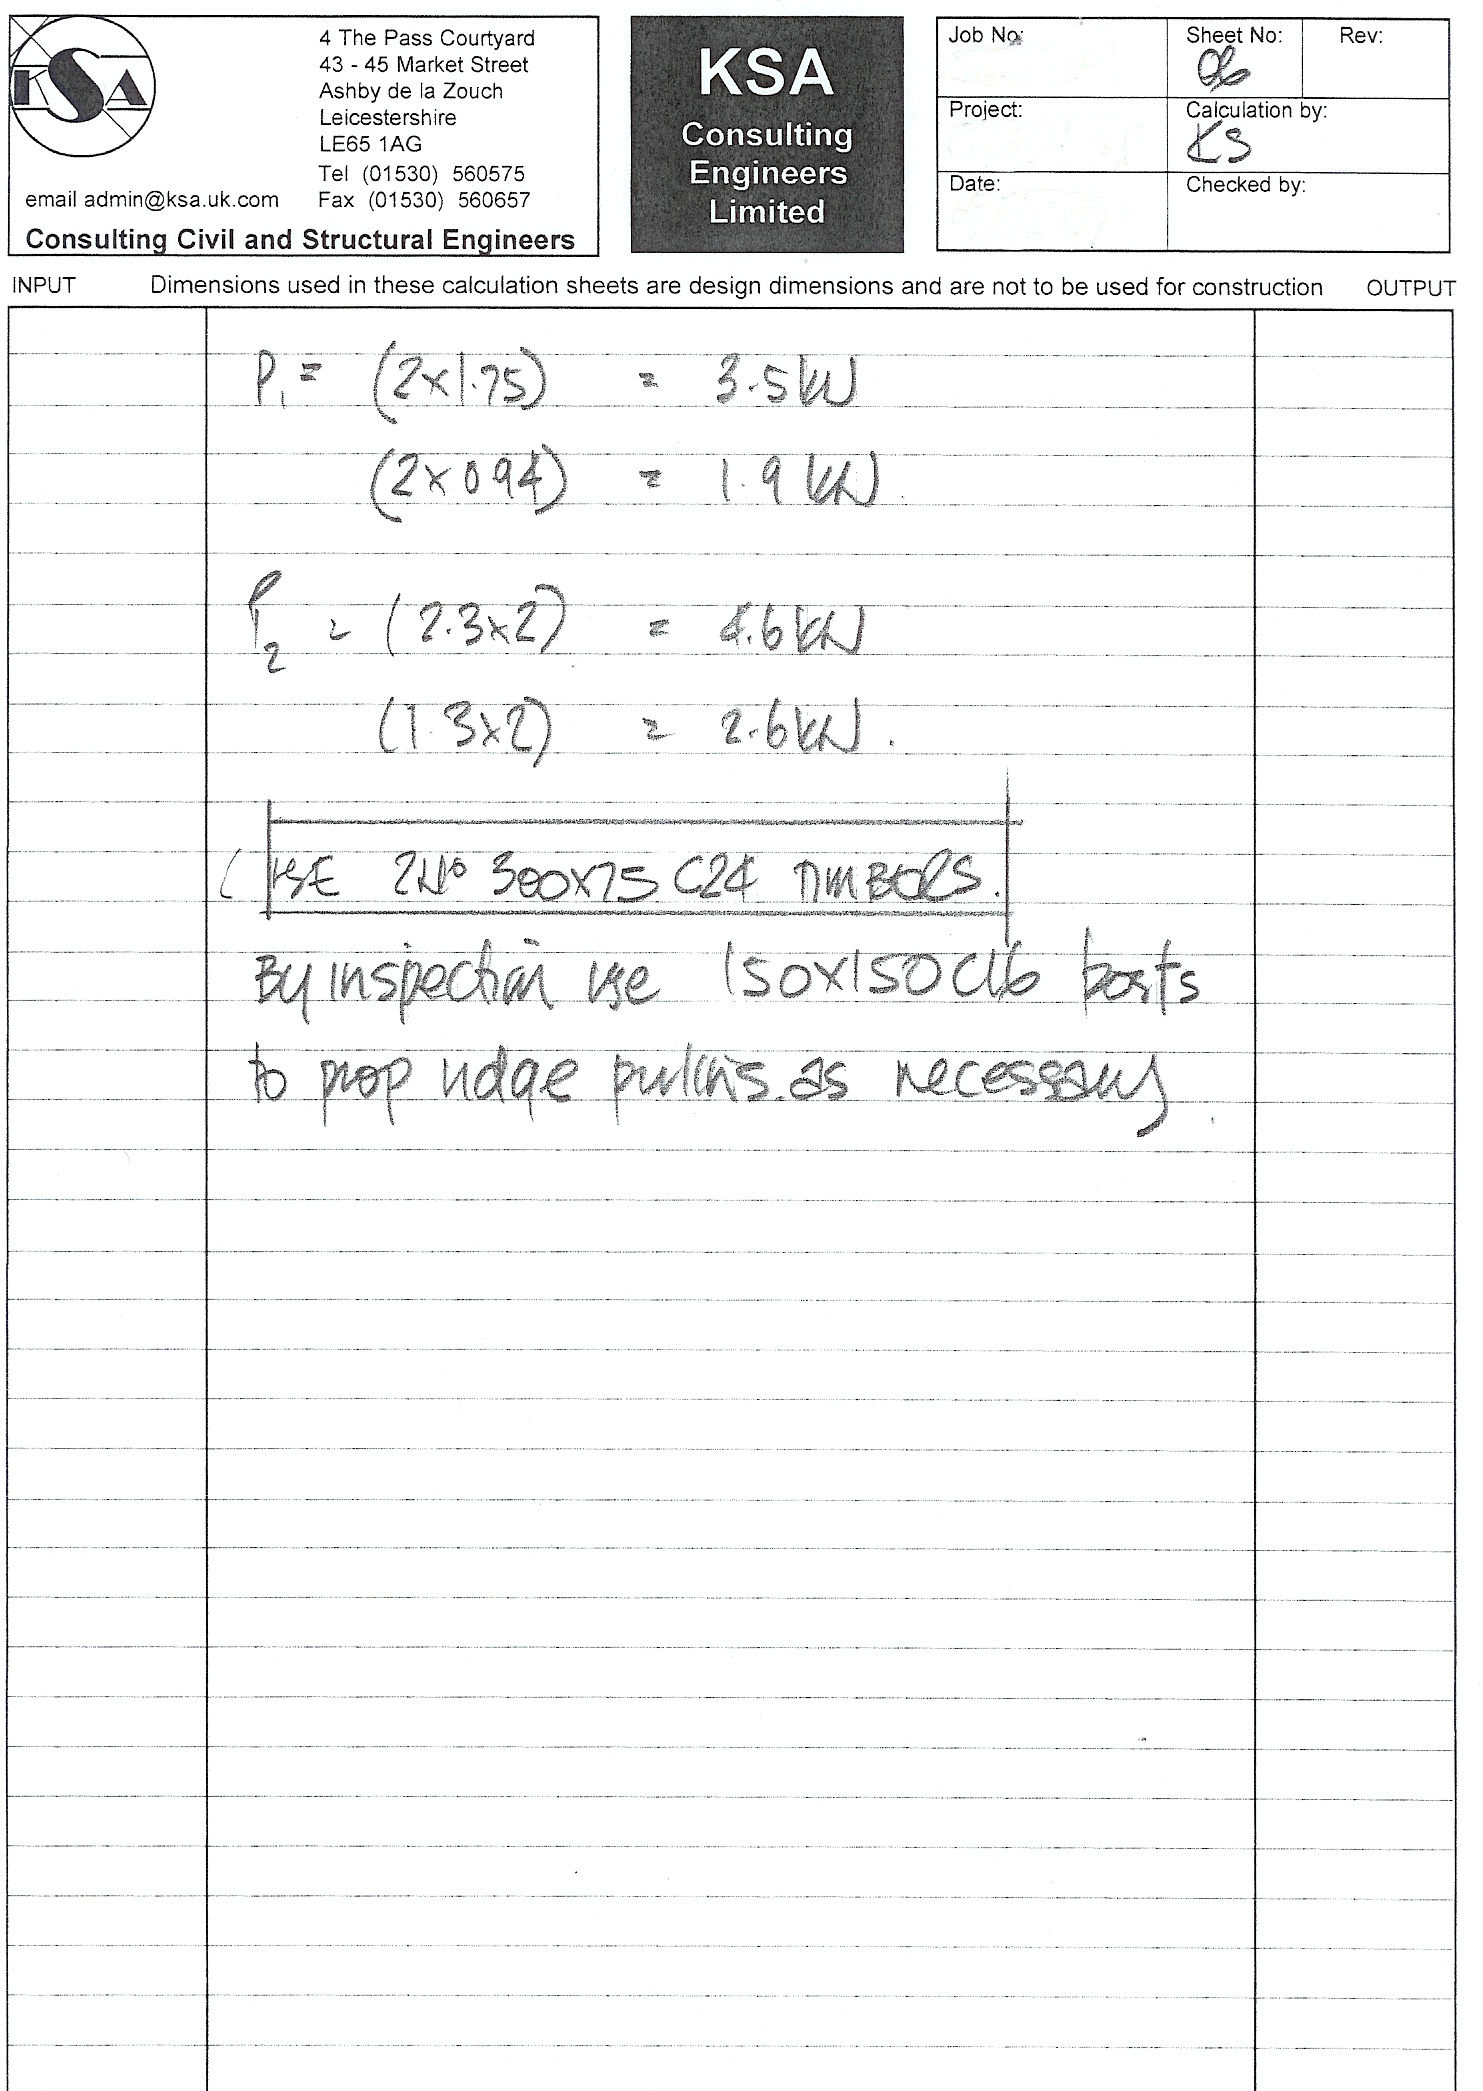 KSA
4 The Pass Courtyard
43 - 45 Market Street
Ashby de la Zouch
Leicestershire
LE65 1AG
Tel (01530) 560575
email admin@ksa.uk.com Fax (01530) 560657
Consulting Civil and Structural Engineers
KSA
Consulting
Engineers
Limited
Job No:
Sheet No:
06
Rev:
Project:
Calculation by:
KS
Date:
Checked by:
INPUT Dimensions used in these calculation sheets are design dimensions and are not to be used for construction OUTPUT
P1 = (2x1.75) = 3.5kN
(2x0.94) = 1.9kN.
P2 = (2.3x2) = 4.6kN
(1.3x2) = 2.6kN.
USE 2No 300x75 C24 TIMBERS.
By inspection use 150x150 C16 posts
to prop ridge purlins as necessary.